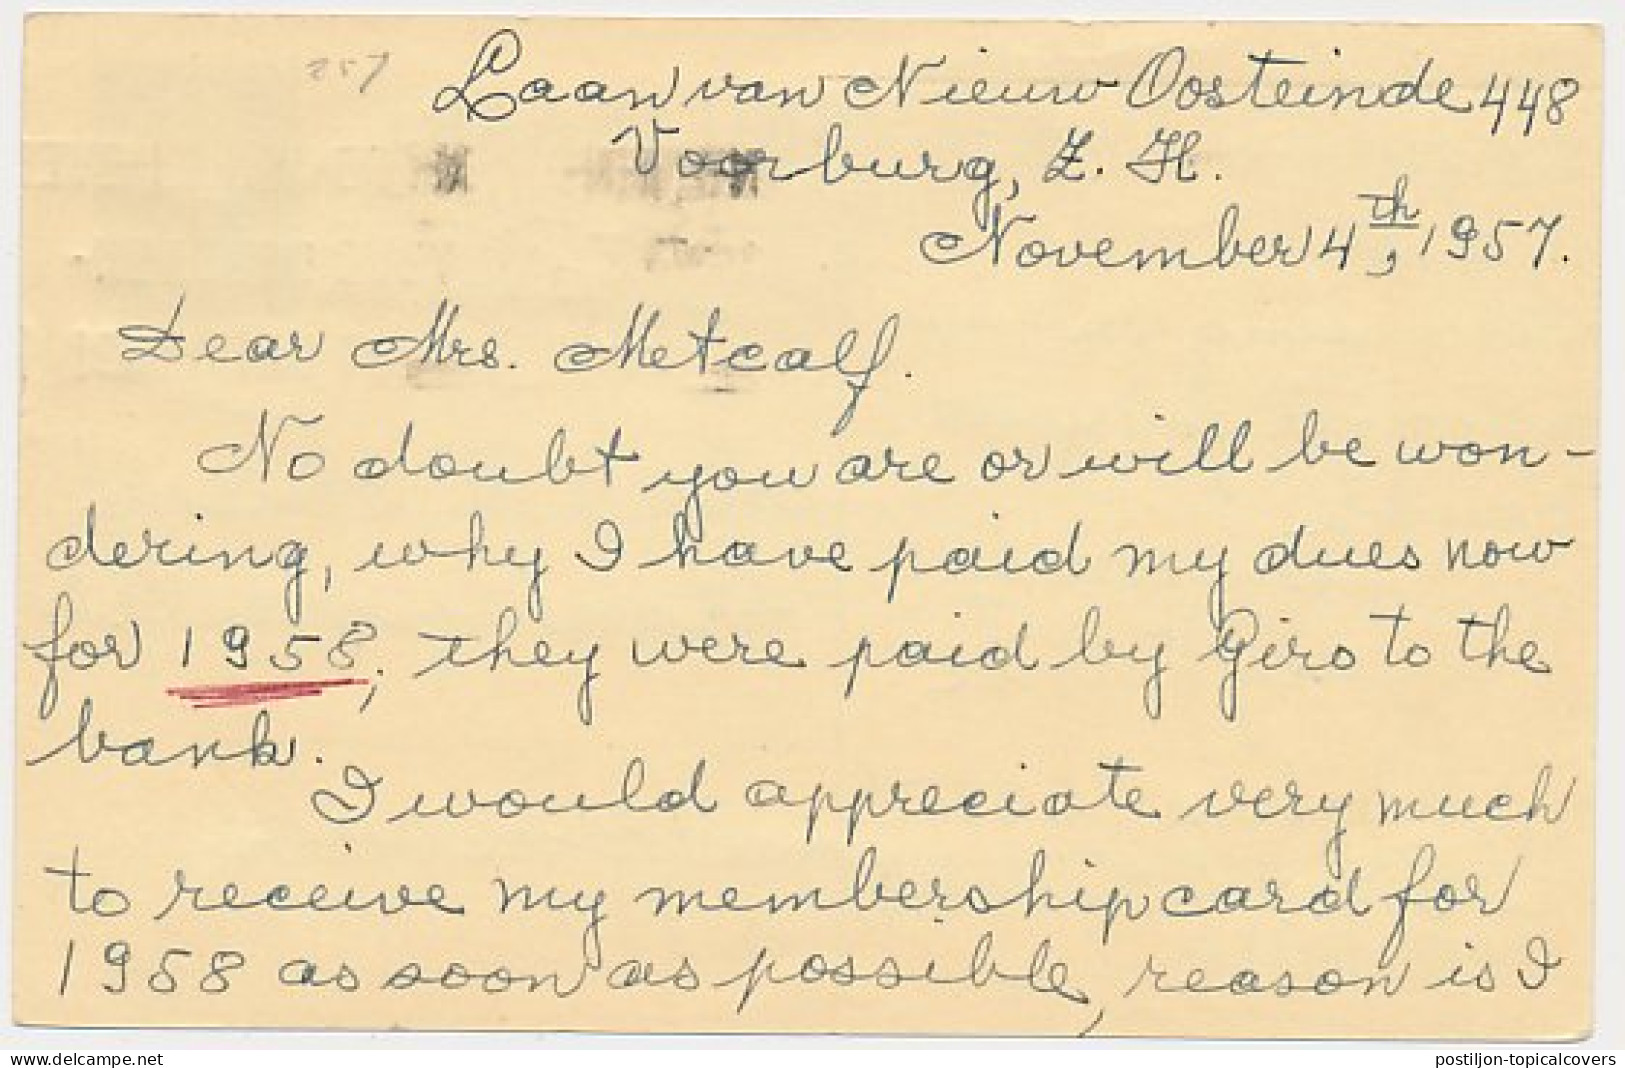 257
Laan van Nieuw Oosteinde 448
Voorburg, Z. H.
November 4th, 1957.
Dear Mrs. Metcalf.
No doubt you are or will be won-
dering, why I have paid my dues now
for 1958; they were paid by Giro to the
bank.
I would appreciate very much
to receive my membership card for
1958 as soon as possible, reason is I
delcampe.net
postiljon-topicalcovers